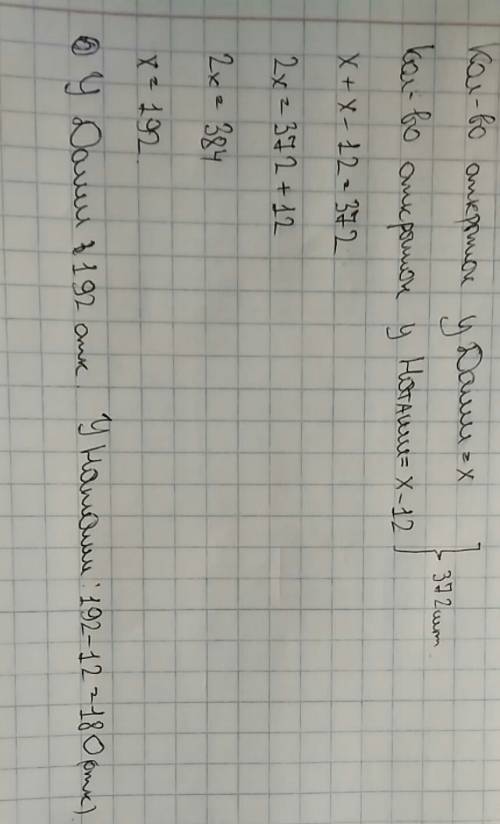 Кол-во открыток у Даши = x
Кол-во открыток у Наташи = x - 12
} 372 шт
x + x - 12 = 372
2x = 372 + 12
2x = 384
x = 192.
У Даши 192 отк. У Наташи: 192 - 12 = 180 (отк)